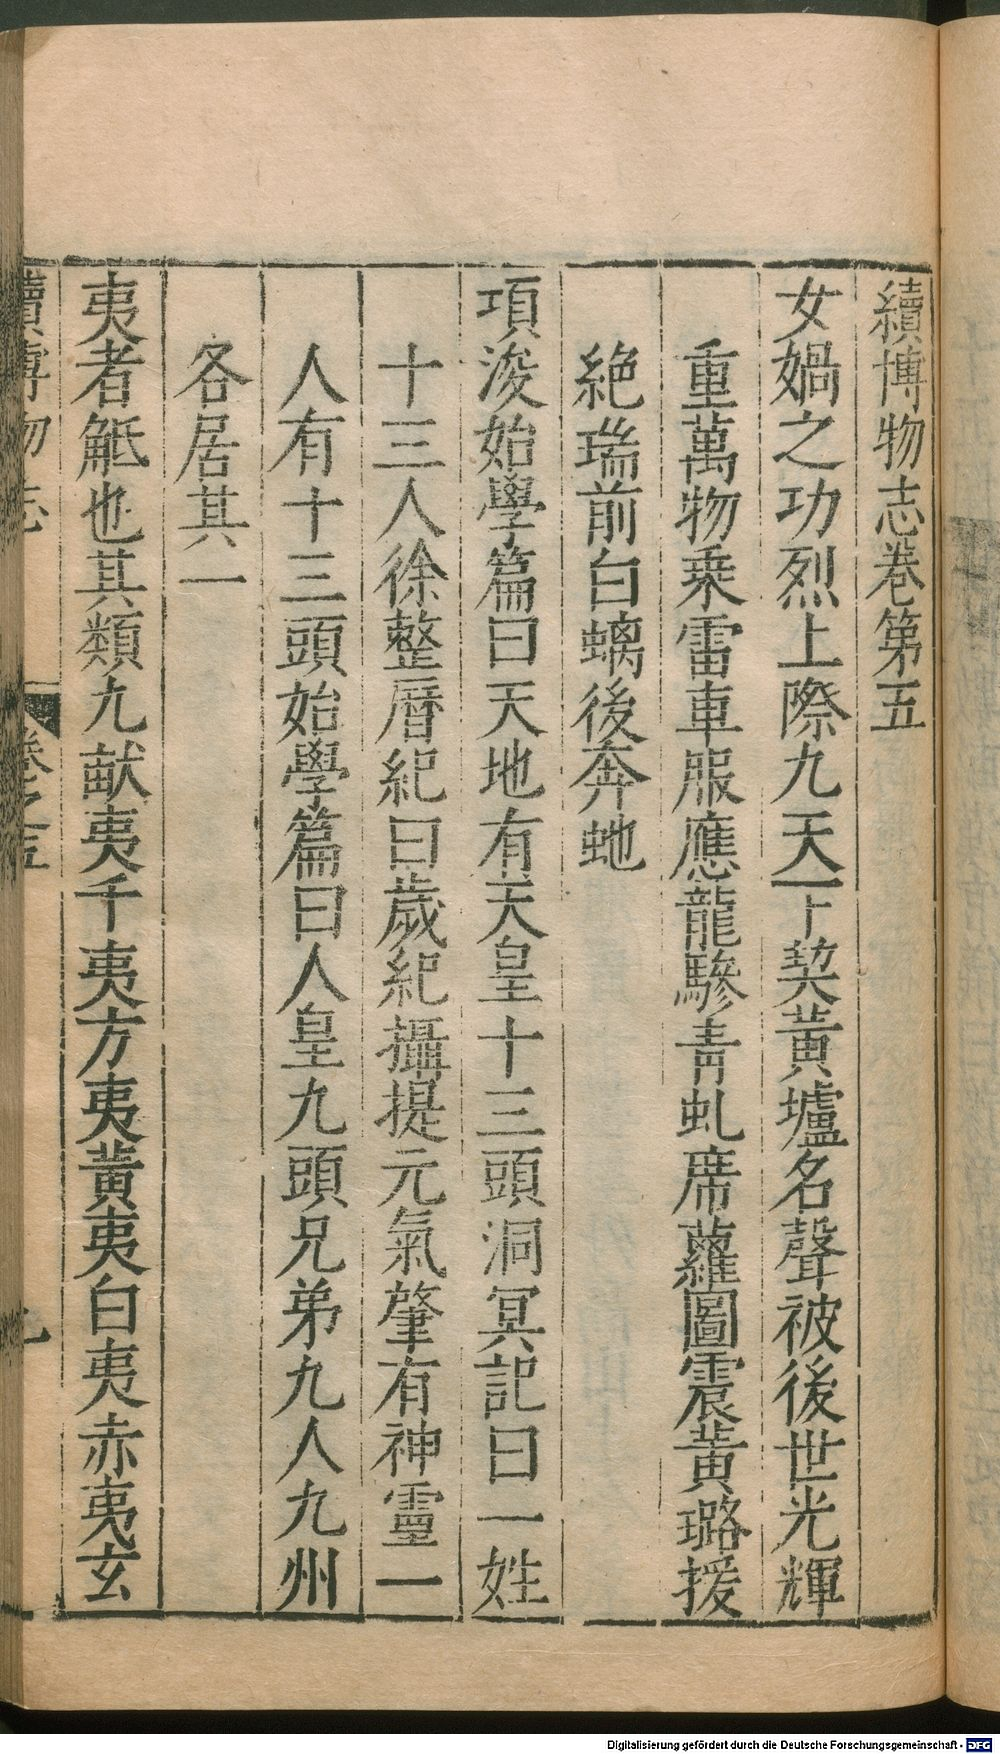 續博物志卷第五
女媧之功烈上際九天下契黃壚名聲被後世光輝
重萬物乘雷車服應龍驂青虬席蘿圖震黃璐援
絶瑞前白螭後奔虵
項浚始學篇曰天地有天皇十三頭洞冥記曰一姓
十三人徐整曆紀曰歲紀攝提元氣肇有神靈一
人有十三頭始學篇曰人皇九頭兄弟九人九州
各居其一
夷者觝也其類九畎夷千夷方夷黃夷白夷赤夷玄
續博物志 卷之五
Digitalisierung gefördert durch die Deutsche Forschungsgemeinschaft - DFG